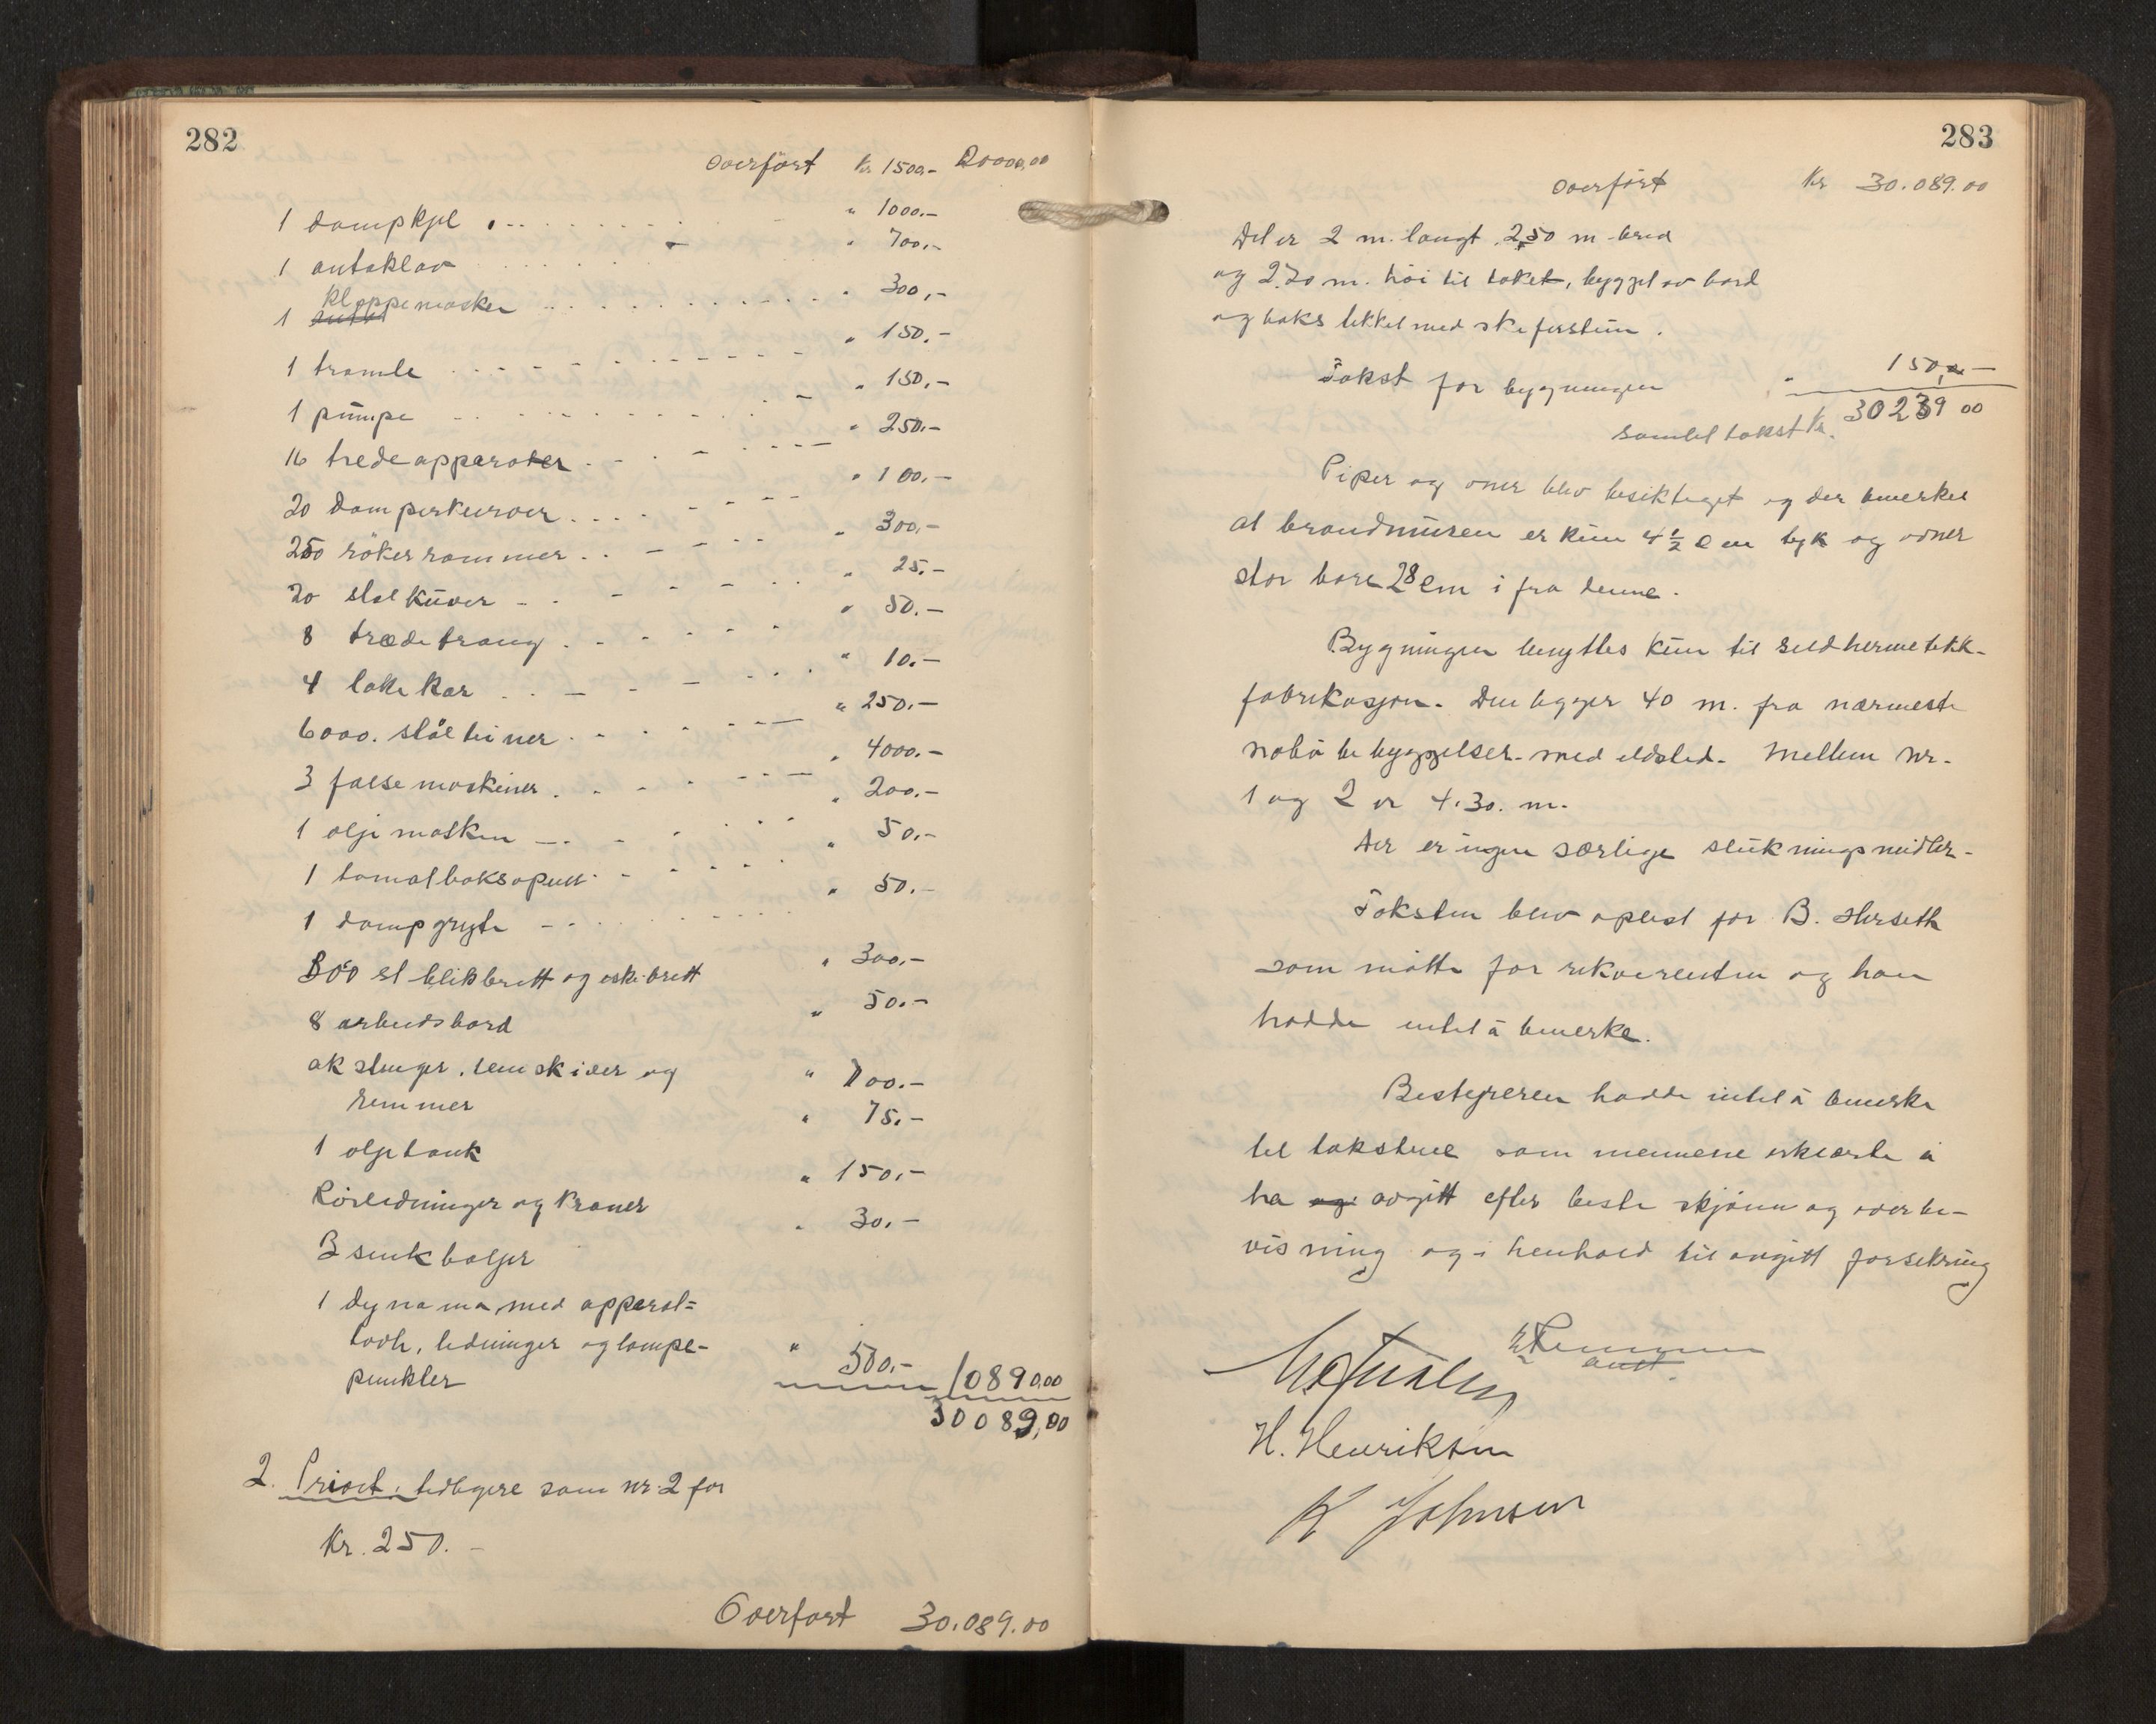 282
Overført Kr 1500,- 20000,00
1 dampkjel . . . . . . . " 1000.-
1 autoklav . . . . . " 700,-
1 kloppemaskin . . . . . . . . . . " 300,-
1 tromle . - - - - - - - - - " 150,-
1 pumpe - . . - . . . . . - " 150,-
16 tredeapparater - . - . - - - " 250.-
20 damperkurver . . . . - - - " 100,-
250 røkerrammer . . - - - . . " 300,-
20 stolkuver - . - - . . " 25.-
8 trædetraug . - . - . . " 50.-
4 lakekar . . - - - . . . " 10.-
6000. ståltiner . . . . - - - " 250.-
3 falsemaskiner . . - . - - - " 4000.-
1 oljemaskin - . - . . . " 200.-
1 tomatboksopun . - - . . " 50.-
1 dampgryte - . . . . . . " 50.-
300 st blikbrett og eskebrett " 300,-
8 arbeidsbord " 50.-
akslinger, remskiver og
remmer " 700.-
1 oljetank " 75.-
Rørledninger og kraner " 150,-
3 sinkbaljer " 30.-
1 dynamo med apparat=
tavle, ledninger og lampe-
punkter " 500,- 10890,00
30089,00
2. Privet, tidligere som nr. 2 for
Kr. 250.-
Overført 30.089.00
283
Overført Kr 30.089.00
Det er 2 m. langt 2,50 m bred
og 2,20 m. høi til taket, bygget av bord
og taks tekket med skiferstein.
Takst for bygningen " 150,-
Samlet takst Kr. 30239 00
Piper og ovner blev besiktiget og der bemerkes
at brandmuren er kun 4½ cm tyk og ovner
står bare 28 cm i fra denne.
Bygningen benyttes kun til sildhermetikk-
fabrikasjon. Den ligger 40 m. fra nærmeste
nabobebyggelser med ildsted. Mellem nr.
1 og 2 er 4.30. m.
Der er ingen særlige slukningsmidler-
Taksten blev oplest for B. Herseth
som møtte for rekvirenten og han
hadde intet å bemerke.
Bestyreren hadde intet å bemerke
til takstene som mennene erklærte å
ha og avgitt efter beste skjønn og overbe-
visning og i henhold til avgitt forsikring
H. Henriksen
K Johnsen